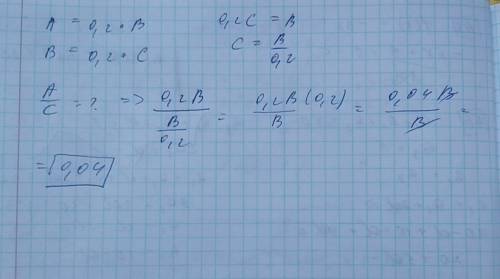 A = 0,2 • B
B = 0,2 • C
0,2C = B
C = B/0,2
A/C = ? => 0,2B/(B/0,2) = 0,2B/B (0,2) = 0,04B/B =
= 0,04